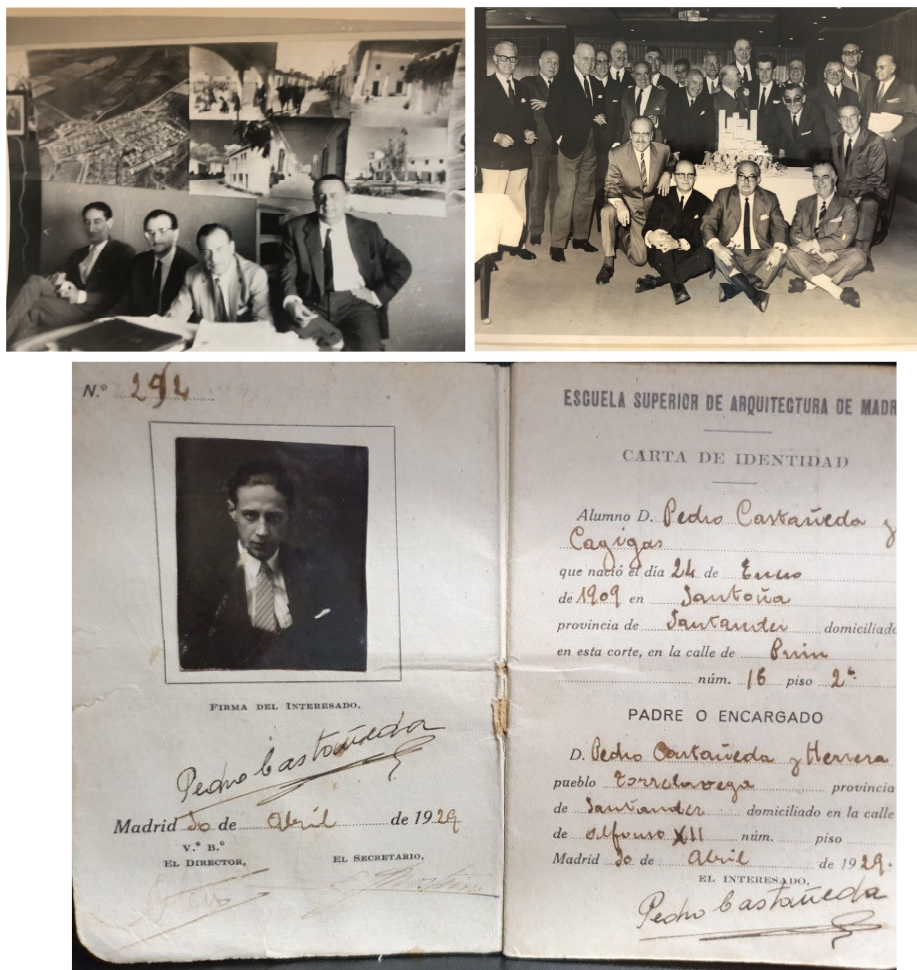 N.º 294
FIRMA DEL INTERESADO,
Pedro Castañeda
Madrid 30 de Abril de 1929
V.º B.º
EL DIRECTOR,
EL SECRETARIO,
ESCUELA SUPERIOR DE ARQUITECTURA DE MADR
CARTA DE IDENTIDAD
Alumno D. Pedro Castañeda y
Cagigas
que nació el día 24 de Enero
de 1909 en Santoña
provincia de Santander domiciliado
en esta corte, en la calle de Prim
núm. 16 piso 2º
PADRE O ENCARGADO
D. Pedro Castañeda y Herrera
pueblo Torrelavega provincia
de Santander domiciliado en la calle
de Alfonso XII núm. piso
Madrid 30 de Abril de 1929.
EL INTERESADO,
Pedro Castañeda